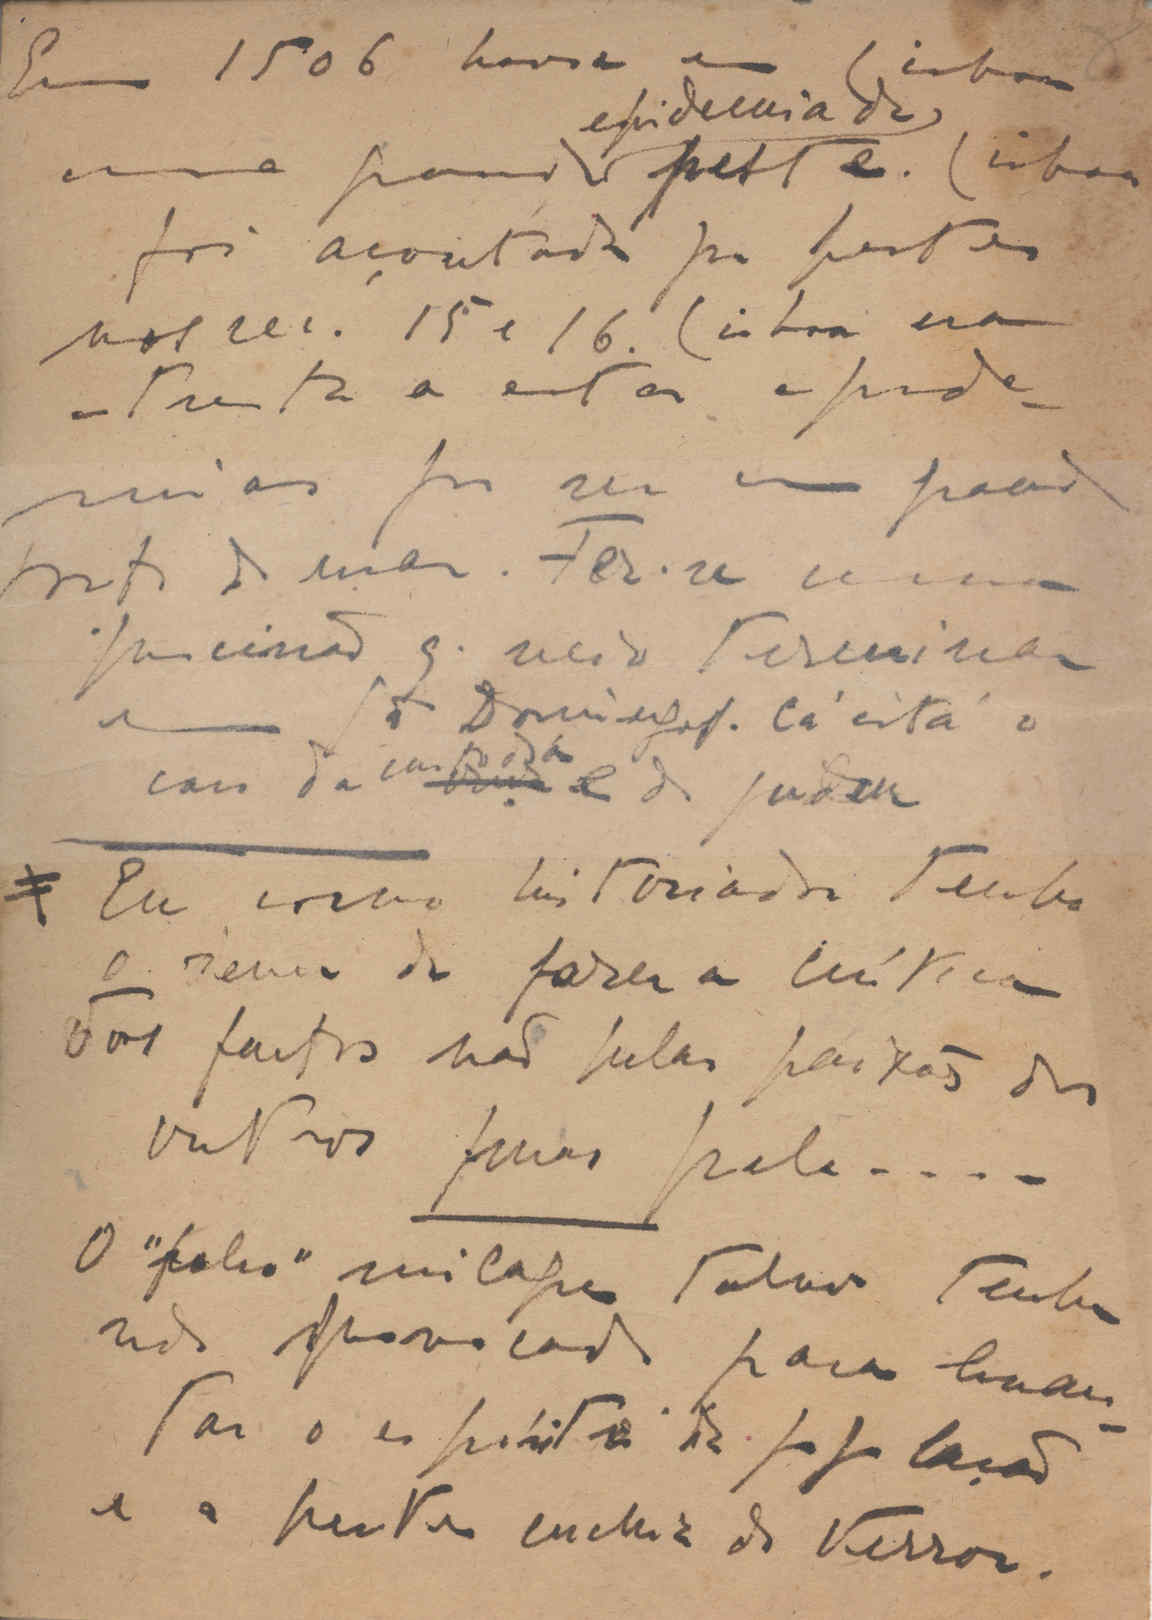 Em 1506 houve em Lisboa
epidemia de
uma grande peste. Lisboa
foi açoutada por pestes
nos sec. 15 e 16. Lisboa era
atreita a estas epide-
mias por ser um grande
porto de mar. Fez-se uma
procissão q. veio terminar
em S. Domingos. Cá está o
caso da e do judeu
Eu como historiador tenho
o de fazer a crítica
dos factos não pelas paixões dos
outros mas pela - - - -
O "falso" milagre talvez tenha
sido provocado para levan-
tar o espírito da população
e a peste enchia de terror.